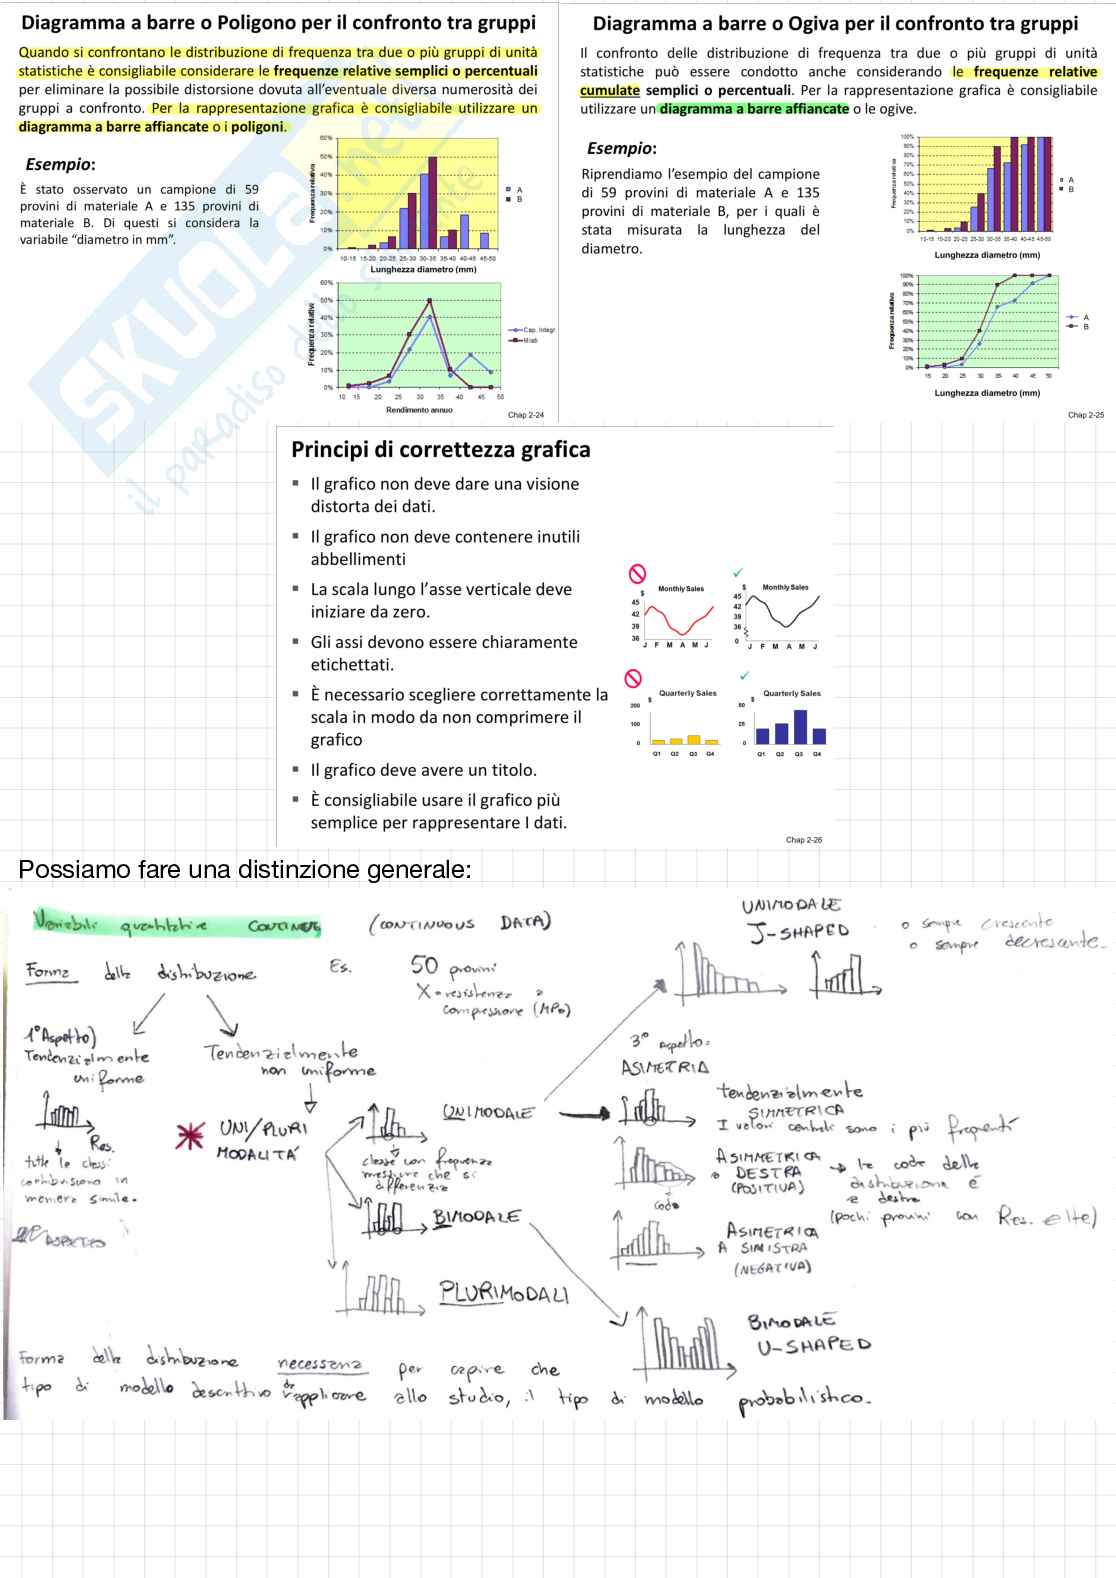 Diagramma a barre o Poligono per il confronto tra gruppi
Quando si confrontano le distribuzione di frequenza tra due o più gruppi di unità
statistiche è consigliabile considerare le frequenze relative semplici o percentuali
per eliminare la possibile distorsione dovuta all'eventuale diversa numerosità dei
gruppi a confronto. Per la rappresentazione grafica è consigliabile utilizzare un
diagramma a barre affiancate o i poligoni.
Esempio:
È stato osservato un campione di 59
provini di materiale A e 135 provini di
materiale B. Di questi si considera la
variabile "diametro in mm".
Frequenza relativa
60%
50%
40%
30%
20%
10%
0%
10-15 15-20 20-25 25-30 30-35 35-40 40-45 45-50
Lunghezza diametro (mm)
A
B
Frequenza relativa
60%
50%
40%
30%
20%
10%
0%
10 15 20 25 30 35 40 45 50
Rendimento annuo
Cap. Integr
Misti
Chap 2-24
SKUOLA.net
il paradiso dello studente
Diagramma a barre o Ogiva per il confronto tra gruppi
Il confronto delle distribuzione di frequenza tra due o più gruppi di unità
statistiche può essere condotto anche considerando le frequenze relative
cumulate semplici o percentuali. Per la rappresentazione grafica è consigliabile
utilizzare un diagramma a barre affiancate o le ogive.
Esempio:
Riprendiamo l'esempio del campione
di 59 provini di materiale A e 135
provini di materiale B, per i quali è
stata misurata la lunghezza del
diametro.
Frequenza relativa
100%
90%
80%
70%
60%
50%
40%
30%
20%
10%
0%
10-15 15-20 20-25 25-30 30-35 35-40 40-45 45-50
Lunghezza diametro (mm)
A
B
Frequenza relativa
100%
90%
80%
70%
60%
50%
40%
30%
20%
10%
0%
15 20 25 30 35 40 45 50
Lunghezza diametro (mm)
A
B
Chap 2-25
Principi di correttezza grafica
Il grafico non deve dare una visione
distorta dei dati.
Il grafico non deve contenere inutili
abbellimenti
La scala lungo l'asse verticale deve
iniziare da zero.
Gli assi devono essere chiaramente
etichettati.
È necessario scegliere correttamente la
scala in modo da non comprimere il
grafico
Il grafico deve avere un titolo.
È consigliabile usare il grafico più
semplice per rappresentare I dati.
Monthly Sales
$
45
42
39
36
J F M A M J
Monthly Sales
$
45
42
39
36
0
J F M A M J
Quarterly Sales
$
200
100
0
Q1 Q2 Q3 Q4
Quarterly Sales
$
50
25
0
Q1 Q2 Q3 Q4
Chap 2-26
Possiamo fare una distinzione generale:
Variabili quantitative CONTINUE (CONTINUOUS DATA)
Forma della distribuzione
Es. 50 provini
X = resistenza a
compressione (MPa)
1° Aspetto)
Tendenzialmente
uniforme
Res.
tutte le classi
contribuiscono in
maniera simile.
ASPETTO
Tendenzialmente
non uniforme
UNI/PLURI
MODALITÁ
UNIMODALE
classe con frequenza
maggiore che si
differenzia
BIMODALE
PLURIMODALI
UNIMODALE
J-SHAPED
o sempre crescente
o sempre decrescente.
3° Aspetto:
ASIMETRIA
tendenzialmente
SIMMETRICA
I valori centrali sono i più frequenti
ASIMMETRICA
a DESTRA
(POSITIVA)
coda
la coda della
distribuzione è
a destra
(pochi provini con Res. elte)
ASIMETRICA
A SINISTRA
(NEGATIVA)
BIMODALE
U-SHAPED
Forma della distribuzione necessaria per capire che
tipo di modello descrittivo da applicare allo studio, il tipo di modello probabilistico.